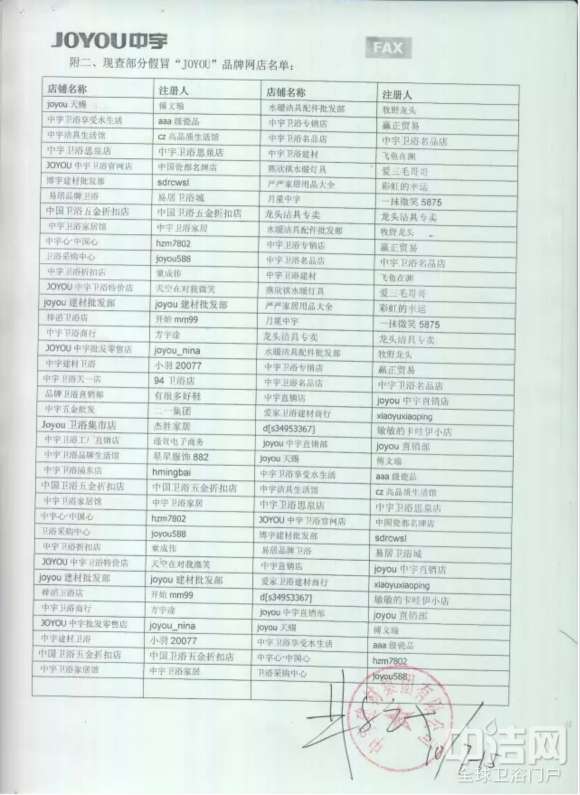 JOYOU中宇
FAX
附二、现查部分假冒“JOYOU”品牌网店名单：
店铺名称 注册人 店铺名称 注册人
joyou 天赐 傅文瑜 水暖洁具配件批发部 牧野龙头
中宇卫浴享受水生活 aaa 级瓷品 中宇卫浴专销店 赢正贸易
中宇洁具生活馆 cz 高品质生活馆 中宇卫浴名品店 中宇卫浴名品店
中宇卫浴思泉店 中宇卫浴思泉店 中宇卫浴建材 飞鱼在渊
JOYOU 中宇卫浴官网店 中国瓷都名牌店 燕欣祺水暖灯具 爱三毛哥哥
博宇建材批发部 sdrcwsl 严严家居用品大全 彩虹的水运
易居品牌卫浴 易居卫浴城 月星中宇 一抹微笑 5875
中国卫浴五金折扣店 中国卫浴五金折扣店 龙头洁具专卖 龙头洁具专卖
中宇卫浴家居馆 中宇卫浴家居 水暖洁具配件批发部 牧野龙头
中宇心·中国心 hzm7802 中宇卫浴专销店 赢正贸易
卫浴采购中心 joyou588 中宇卫浴名品店 中宇卫浴名品店
中宇卫浴折扣店 童成伟 中宇卫浴建材 飞鱼在渊
JOYOU 中宇卫浴特价店 天空在对我微笑 燕欣祺水暖灯具 爱三毛哥哥
joyou 建材批发部 joyou 建材批发部 严严家居用品大全 彩虹的水运
梓滔卫浴店 开始 mm99 月星中宇 一抹微笑 5875
中宇卫浴商行 方宇途 龙头洁具专卖 龙头洁具专卖
JOYOU 中宇批发零售店 joyou_nina 水暖洁具配件批发部 牧野龙头
中宇建材卫浴 小羽 20077 中宇卫浴专销店 赢正贸易
中宇卫浴天一店 94 卫浴店 中宇卫浴名品店 中宇卫浴名品店
品牌卫浴直销部 有很多好鞋 中宇直销店 joyou 中宇直销店
中宇五金批发 二一集团 爱家卫浴建材商行 xiaoyuxiaoping
Joyou 卫浴集市店 杰胜家居 d[s34953367] 敏敏的卡哇伊小店
中宇卫浴工厂直销店 通效电子商务 joyou 中宇直销部 joyou 直销部
中宇卫浴品牌生活馆 星星服饰 882 joyou 天赐 傅文瑜
中宇卫浴浦东店 hmingbai 中宇卫浴享受水生活 aaa 级瓷品
中国卫浴五金折扣店 中国卫浴五金折扣店 中宇洁具生活馆 cz 高品质生活馆
中宇卫浴家居馆 中宇卫浴家居 中宇卫浴思泉店 中宇卫浴思泉店
中宇心·中国心 hzm7802 JOYOU 中宇卫浴官网店 中国瓷都名牌店
卫浴采购中心 joyou588 博宇建材批发部 sdrcwsl
中宇卫浴折扣店 童成伟 易居品牌卫浴 易居卫浴城
JOYOU 中宇卫浴特价店 天空在对我微笑 中宇直销店 joyou 中宇直销店
joyou 建材批发部 joyou 建材批发部 爱家卫浴建材商行 xiaoyuxiaoping
梓滔卫浴店 开始 mm99 d[s34953367] 敏敏的卡哇伊小店
中宇卫浴商行 方宇途 joyou 中宇直销部 joyou 直销部
JOYOU 中宇批发零售店 joyou_nina joyou 天赐 傅文瑜
中宇建材卫浴 小羽 20077 中宇卫浴享受水生活 aaa 级瓷品
中国卫浴五金折扣店 中国卫浴五金折扣店 中宇心·中国心 hzm7802
中宇卫浴家居馆 中宇卫浴家居 卫浴采购中心 joyou588
中洁网
全球卫浴门户